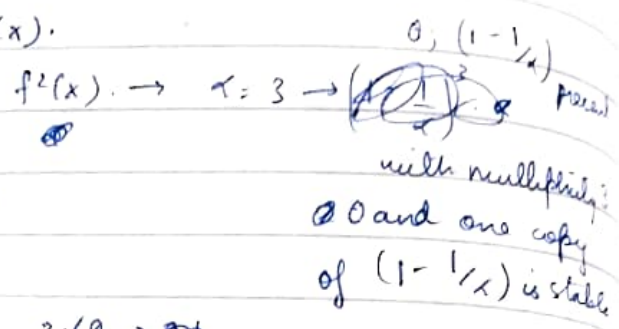 (x).
0, (1 - 1/α)
f²(x). → α = 3 →
with multiplicity:
0 and one copy
of (1 - 1/α) is stable